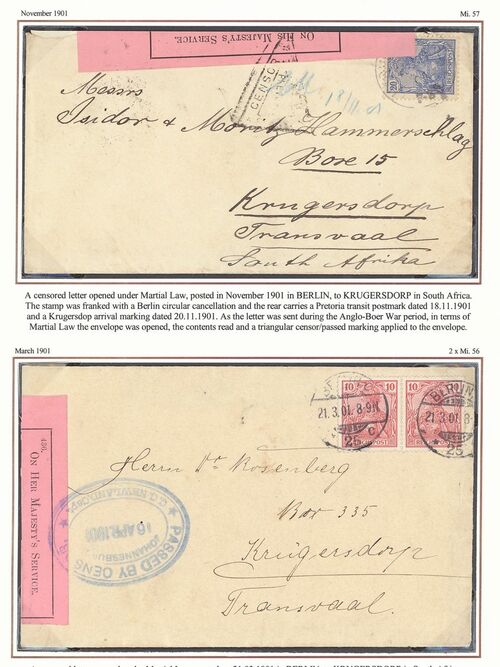 November 1901
Mi. 57
ON HIS MAJESTY'S SERVICE.
CENSOR
18/11.01
20
Messrs
Isidor & Moritz Hammerschlag
Boxe 15
Krugersdorp
Transvaal
South Afrika
A censored letter opened under Martial Law, posted in November 1901 in BERLIN, to KRUGERSDORP in South Africa.
The stamp was franked with a Berlin circular cancellation and the rear carries a Pretoria transit postmark dated 18.11.1901
and a Krugersdop arrival marking dated 20.11.1901. As the letter was sent during the Anglo-Boer War period, in terms of
Martial Law the envelope was opened, the contents read and a triangular censor/passed marking applied to the envelope.
March 1901
2 x Mi. 56
10 10 10 10
21.3.01. 8-9V.
25 c
BERLIN
21.3.01. 8-
25
ON HER MAJESTY'S SERVICE.
Herrn Dr Rosenberg
Box 335
Krügersdorp
Transvaal
PASSED BY CENS
16 APR 1901
JOHANNESBU